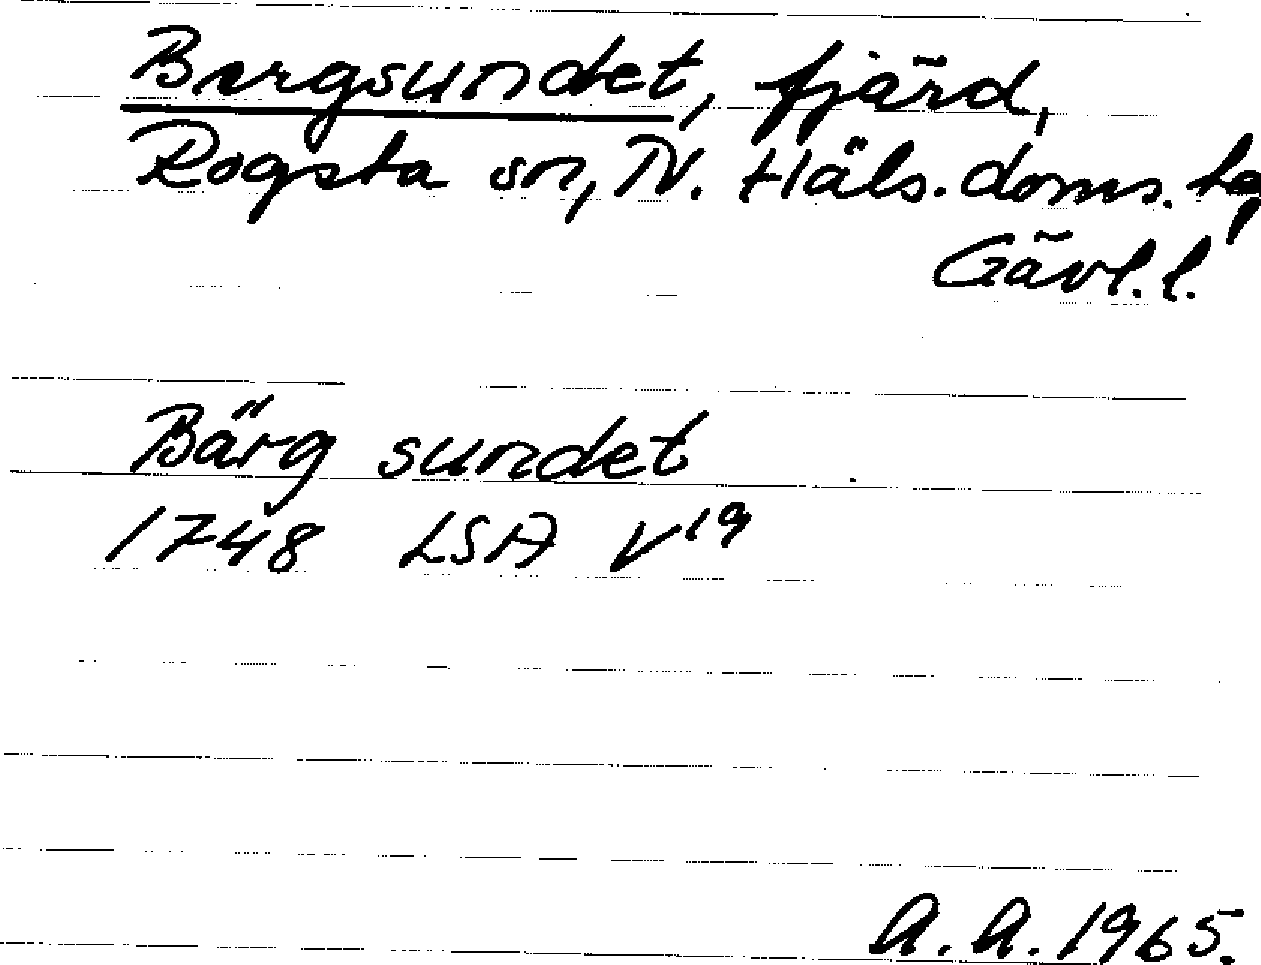 Bergsundet, fjärd,
Rogsta sn, N. Häls. doms.
Gävl. l.
Bärg sundet
1748 LSA V19
A. A. 1965.